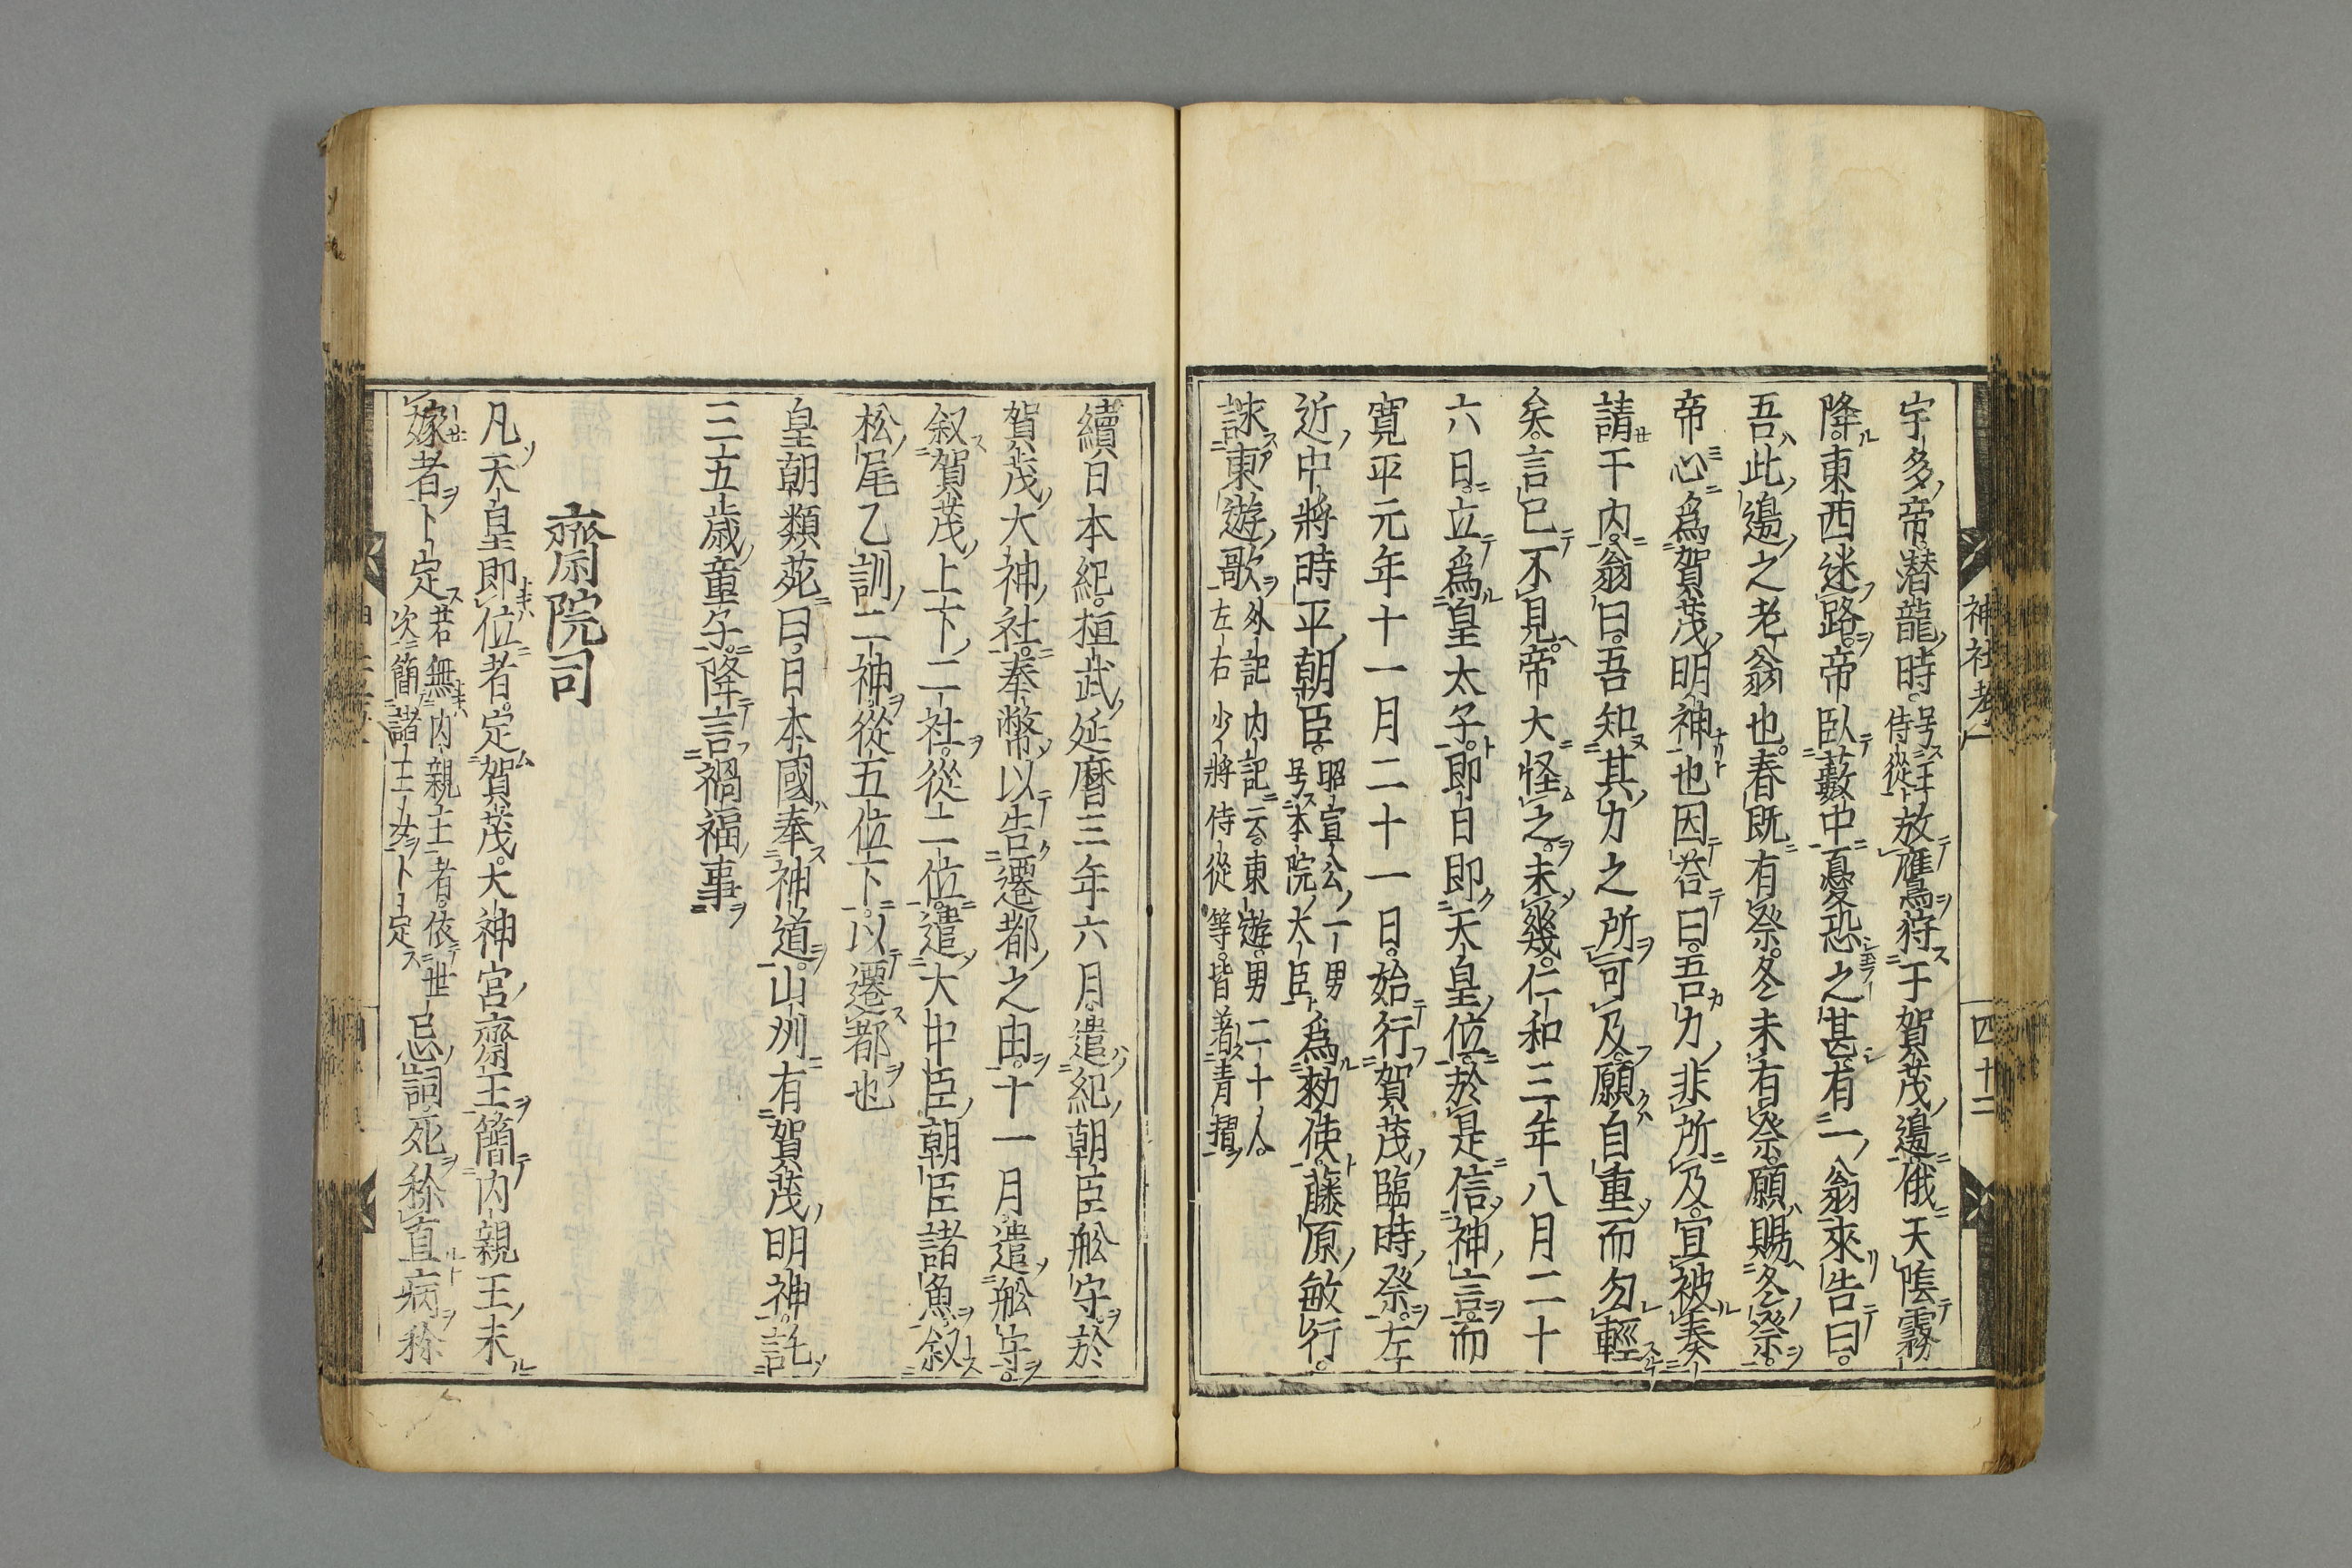 宇多帝潜龍時号王侍從放鷹狩于賀茂邉俄天陰霧
降東西迷路帝臥藪中憂恐之甚有一翁來告曰
吾此邉之老翁也春既有祭冬未有祭願賜冬祭
帝心爲賀茂明神也因荅曰吾力非所及宜被奏
請于内翁曰吾知其力之所可及願自重而勿輕
矣言已不見帝大怪之未幾仁和三年八月二十
六日立爲皇太子即日即天皇位於是信神言而
寛平元年十一月二十一日始行賀茂臨時祭左
近中將時平朝臣昭宣公一男号本院大臣爲勑使藤原敏行
詠東遊歌外記内記云東遊男二十人左右少將侍從等皆著青摺
續日本紀桓武延曆三年六月遣紀朝臣舩守於
賀茂大神社奉幣以告遷都之由十一月遣舩守
叙賀茂上下二社從二位遣大中臣朝臣諸魚叙
松尾乙訓二神從五位下以遷都也
皇朝類苑曰日本國奉神道山州有賀茂明神託
三五歳童子降言禍福事
齋院司
凡天皇即位者定賀茂大神宮齋王簡内親王未
嫁者卜定若無内親王者依世次簡諸王女卜定忌詞死稱直病稱
神社考一
四十二